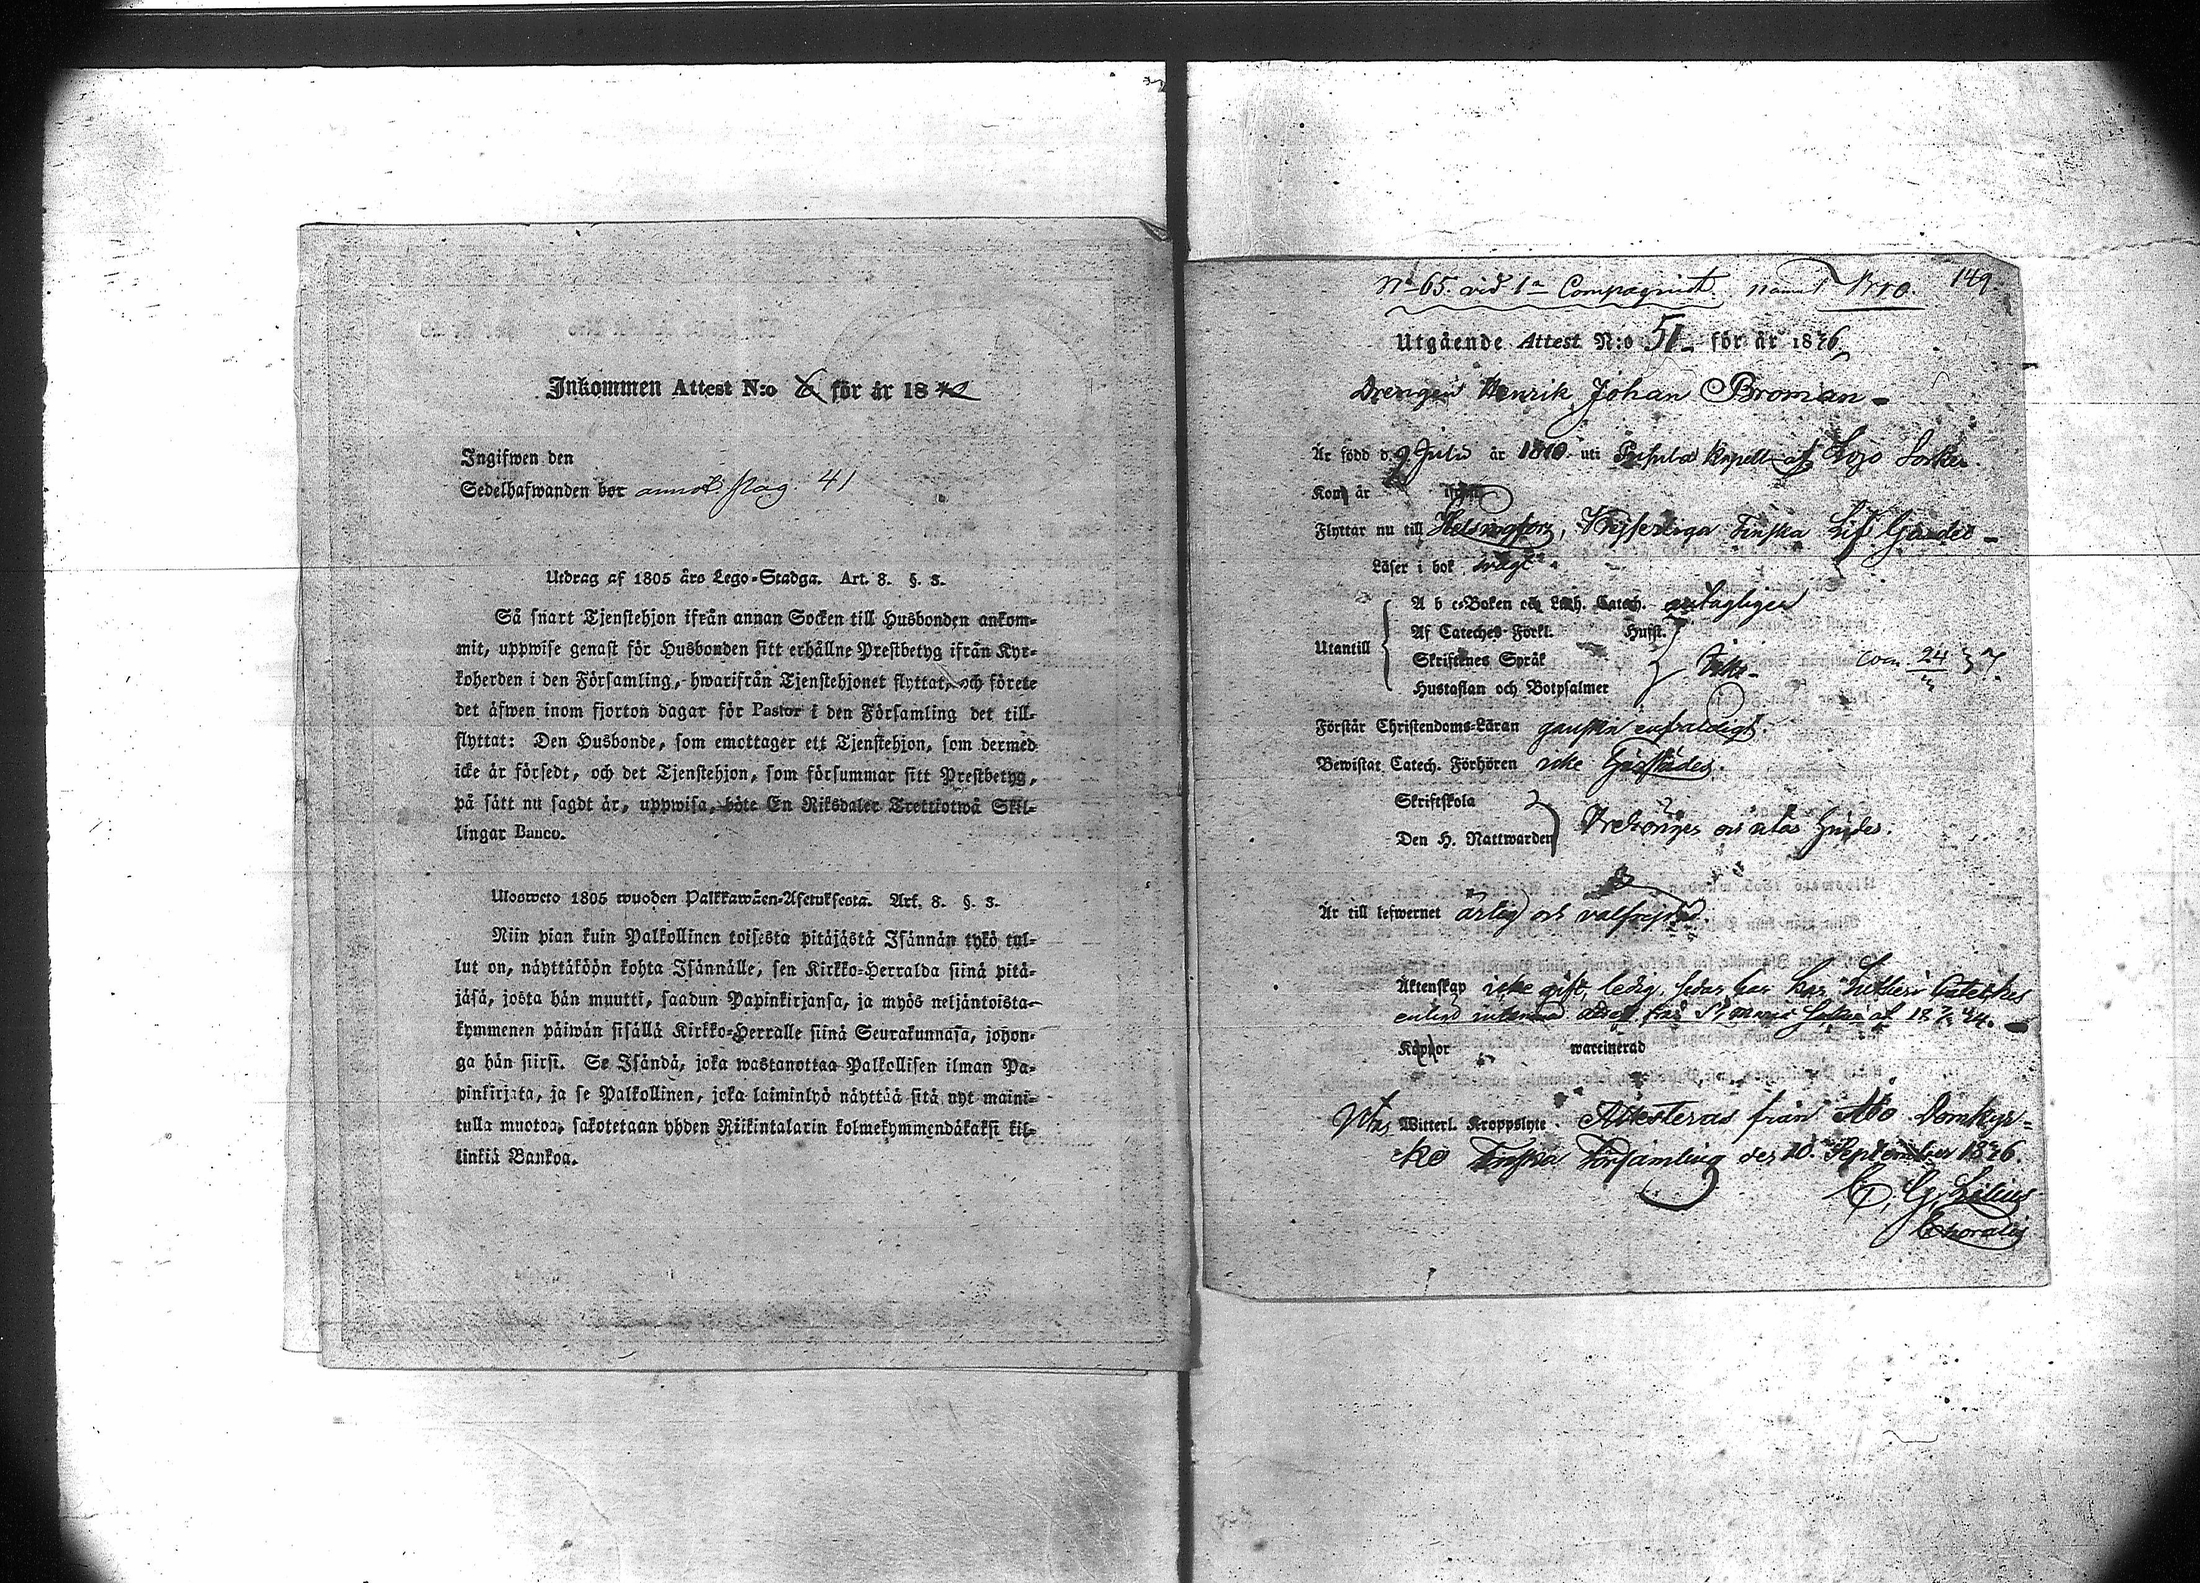 Inkommen Attest N:o 6 för år 18
Ingifwen den
Sedelhafwanden bor annot. pag. 41
Utdrag af 1805 års Lego-Stadga. Art. 8. §. 3.
Så snart Tjenstehjon ifrån annan Socken till Husbonden ankom-
mit, uppwise genast för Husbonden sitt erhållne Prestbetyg ifrån Kyr-
koherden i den Församling, hwarifrån Tjenstehjonet flyttat, och förete
det äfwen inom fjorton dagar för Pastor i den Församling det till-
flyttat: Den Husbonde, som emottager ett Tjenstehjon, som dermed
icke är försedt, och det Tjenstehjon, som försummar sitt Prestbetyg,
på sätt nu sagdt är, uppwisa, böte En Riksdaler Trettiotwå Skil-
lingar Banco.
Ulosweto 1805 wuoden Palkkawäen-Asetuksesta. Art. 8. §. 3.
Niin pian kuin Palkollinen toisesta pitäjästä Isännän tykö tul-
lut on, näyttäköön kohta Isännälle, sen Kirkko-Herralda siinä pitä-
jäsä, josta hän muutti, saadun Papinkirjansa, ja myös neljäntoista-
kymmenen päiwän sisällä Kirkko-Herralle siinä Seurakunnasa, johon-
ga hän siirsi. Se Isändä, joka wastanottaa Palkollisen ilman Pa-
pinkirjata, ja se Palkollinen, joka laiminlyö näyttää sitä nyt maini-
tulla muotoa, sakotetaan yhden Riikintalarin kolmekymmendäkaksi kil-
linkiä Bankoa.
No 65. vid 1a Compagniet namnt Bro. 149
Utgående Attest N:o 51 för år 1846
Drengen Henrik Johan Broman
Är född d. 9 Julii år 18 uti Pusula Kapell af Lojo Socken
Kom år ifrån
Flyttar nu till Helsingfors, Kejserliga Finska Lif Gardet
Läser i bok svagt
Utantill A b c-Boken och Luth. Catech. antagligen
Af Cateches-Förkl. Husst.
Skriftenes Språk Icke
Hustaflan och Botpsalmer
Förstår Christendoms-Läran ganska enfaldigt.
Bewistat Catech. Förhören icke
Skriftskola
Den H. Nattwarden
Är till lefwernet ärlig och välfrejdad.
Äktenskap icke gift, ledig, Lutheri Cateches
Koppor waccinerad
Witterl. Kroppslyte. Attesteras från Åbo Domkyr-
ko Finska Församling den 10 September 1846.
C. G. Lilius